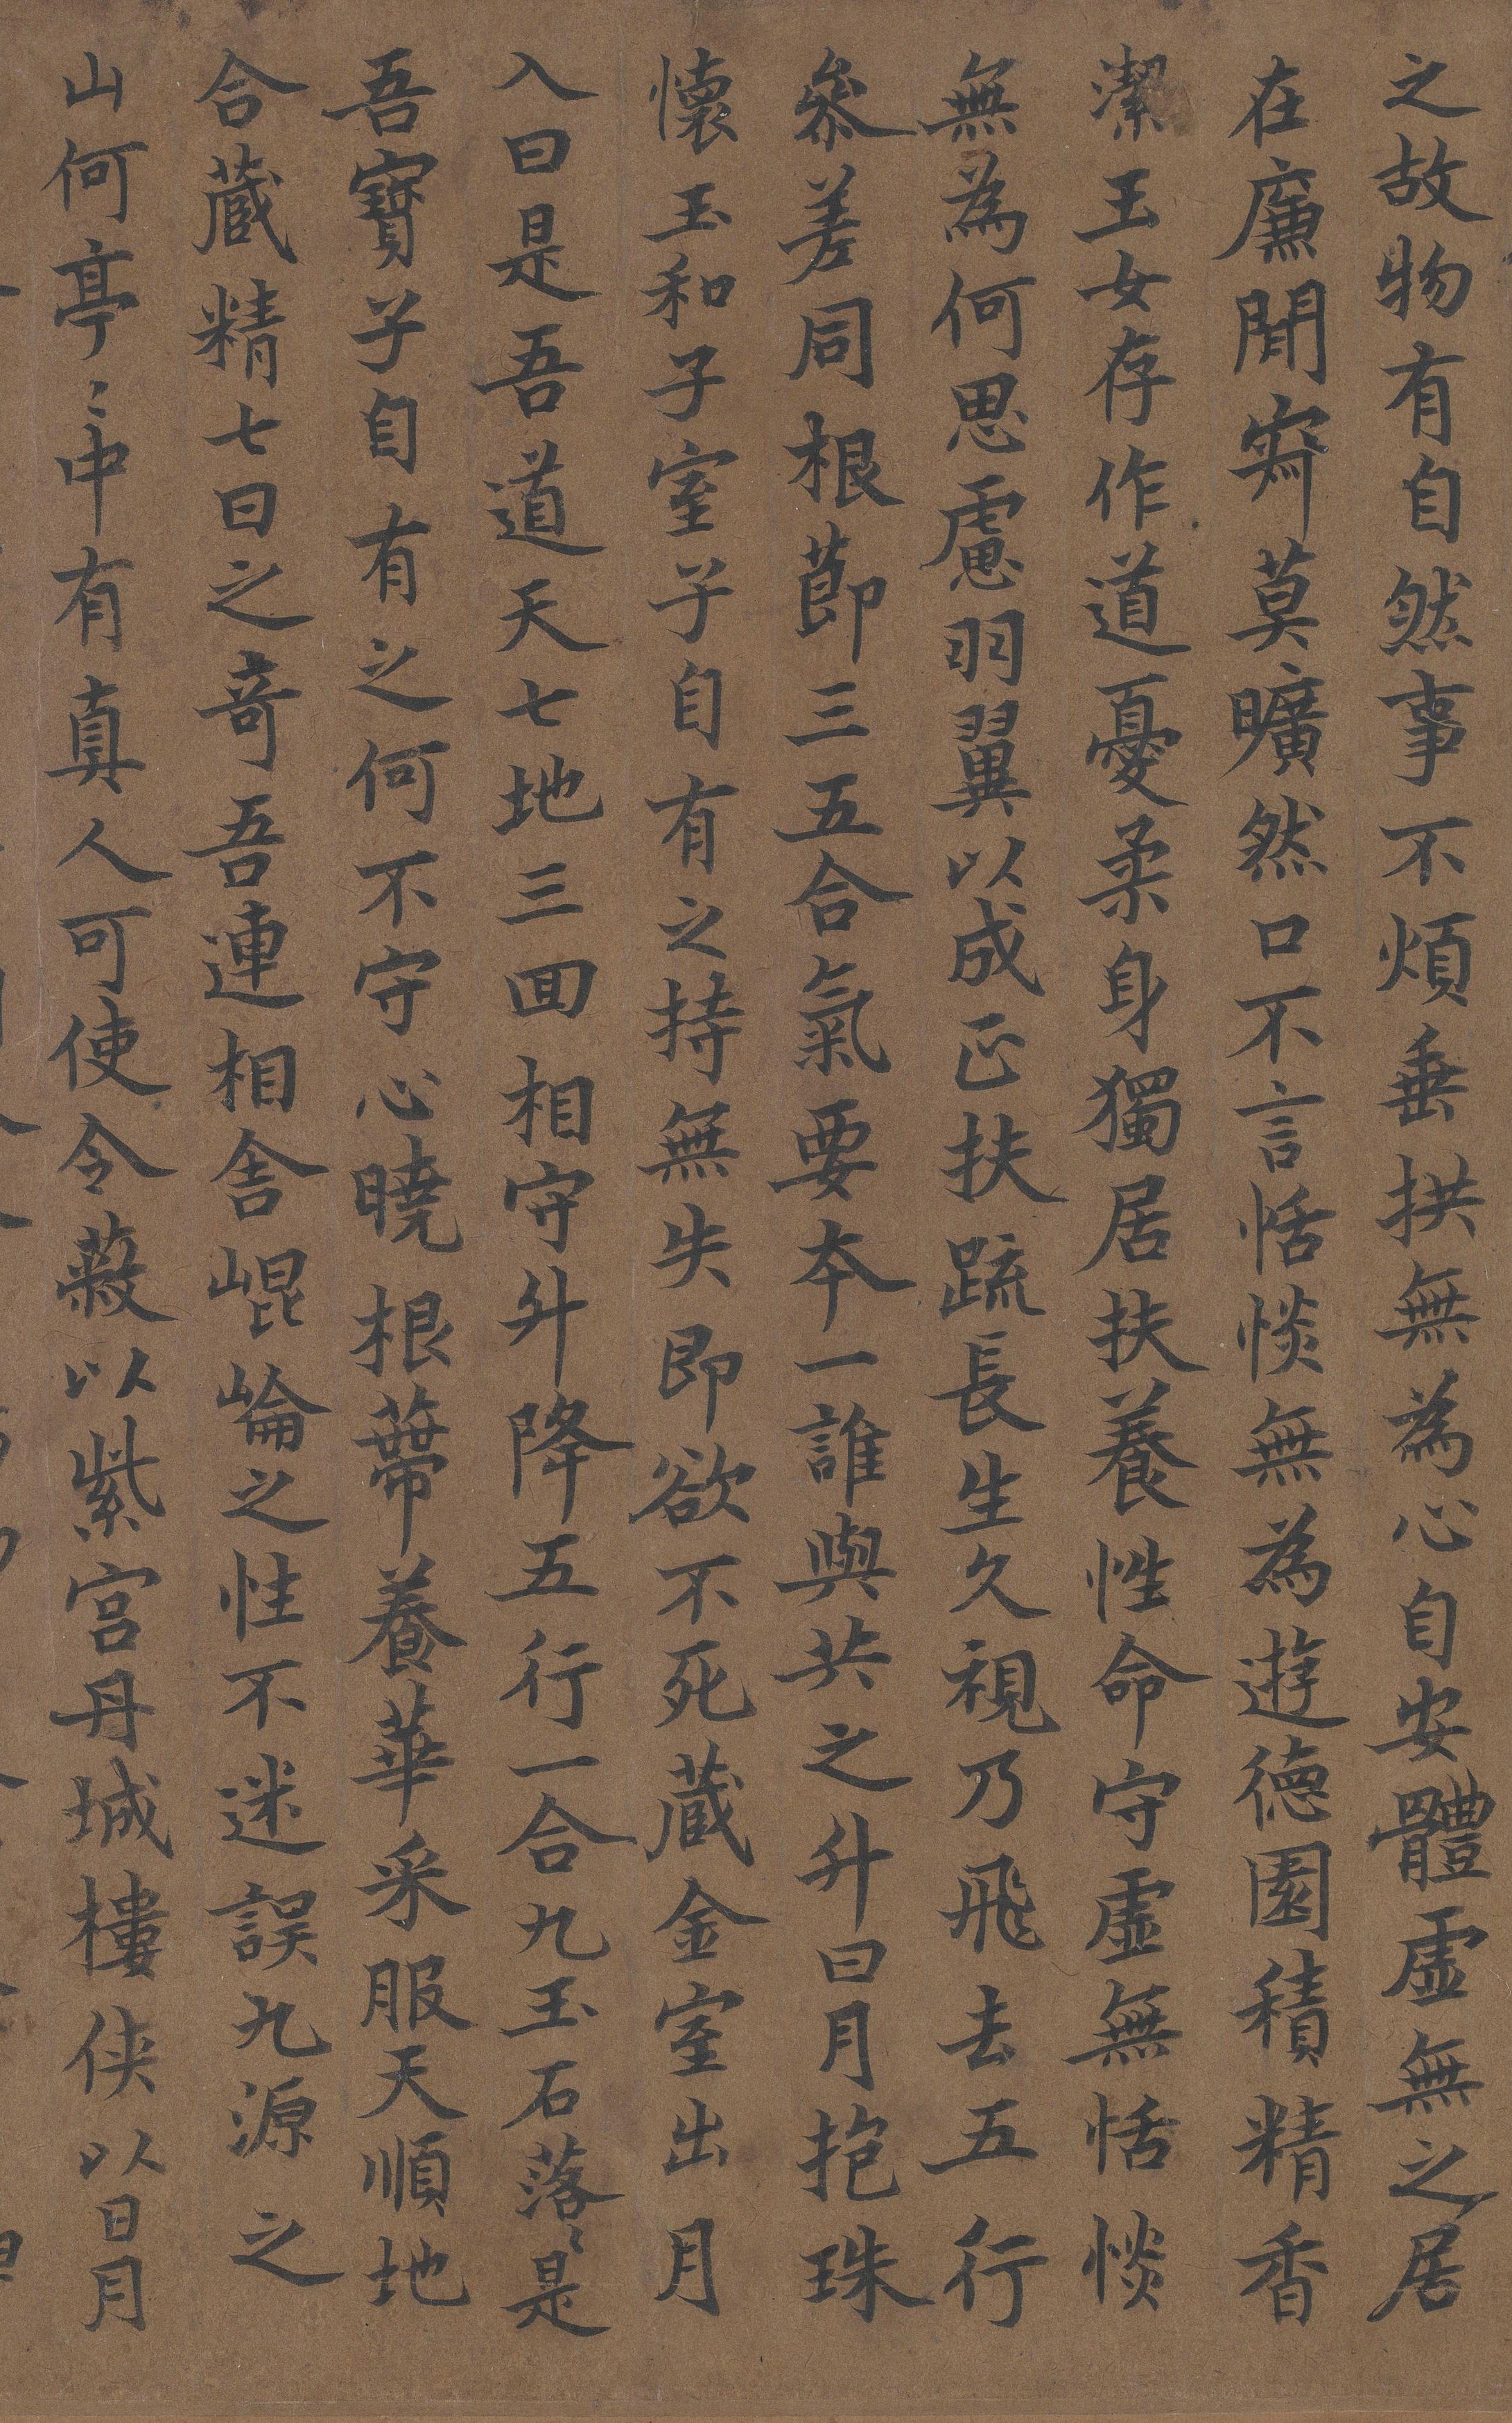 之故物有自然事不煩垂拱無為心自安體虛無之居
在廉閒寂莫曠然口不言恬惔無為遊德園積精香
潔玉女存作道憂柔身獨居扶養性命守虛無恬惔
無為何思慮羽翼以成正扶疏長生久視乃飛去五行
參差同根莭三五合氣要本一誰與共之升日月抱珠
懷玉和子室子自有之持無失即欲不死藏金室出月
入日是吾道天七地三回相守升降五行一合九玉石落〻是
吾寶子自有之何不守心曉根蔕養華采服天順地
合藏精七日之奇吾連相舍崐崘之性不迷誤九源之
山何亭〻中有真人可使令蔽以紫宮丹城樓俠以日月